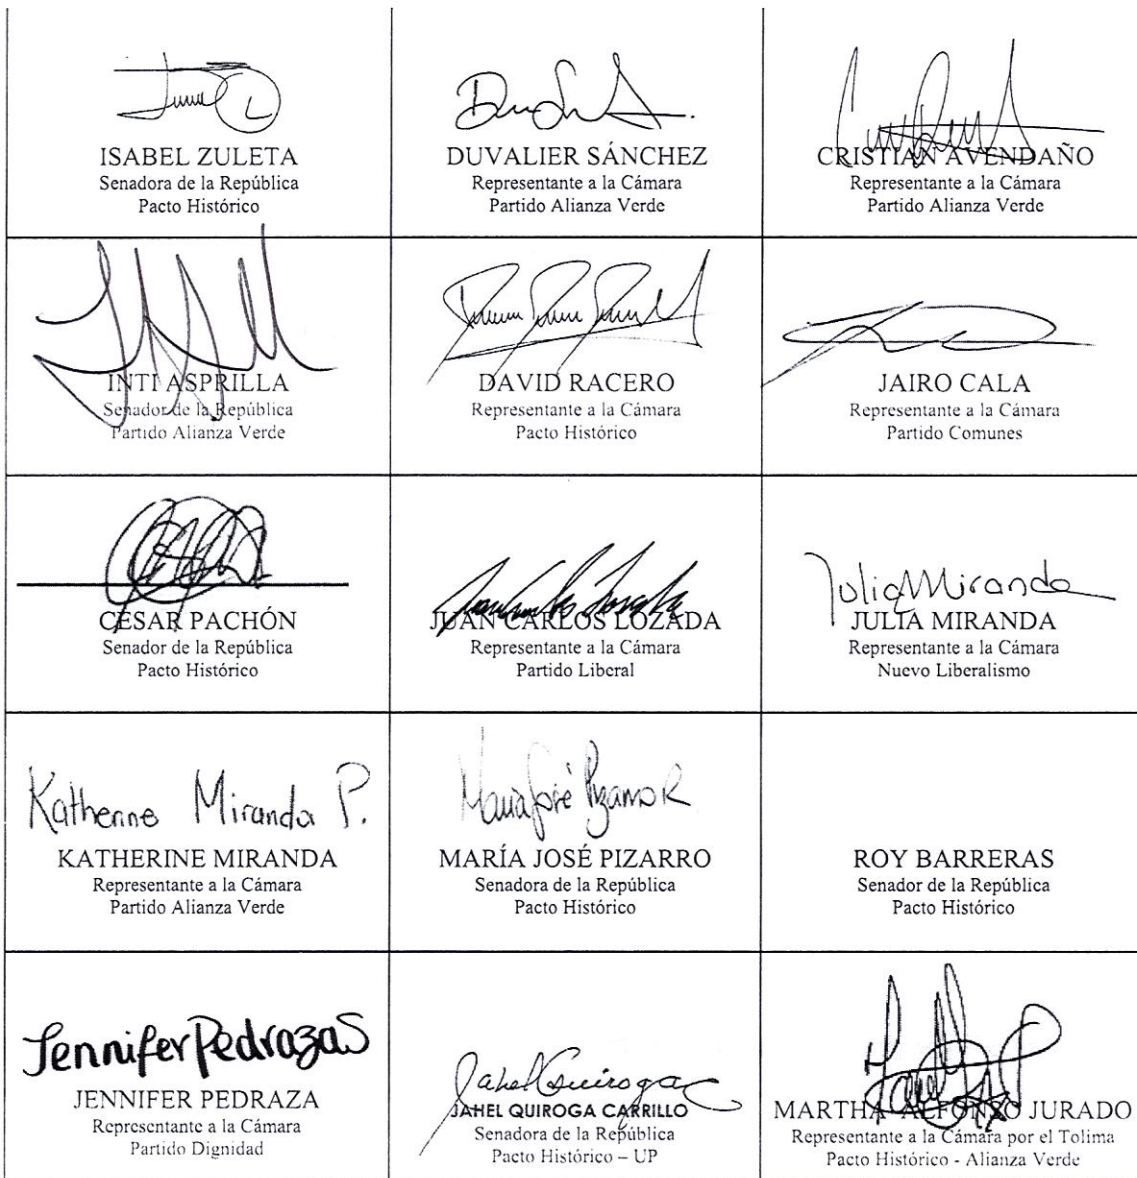 ISABEL ZULETA
Senadora de la República
Pacto Histórico
DUVALIER SÁNCHEZ
Representante a la Cámara
Partido Alianza Verde
CRISTIAN AVENDAÑO
Representante a la Cámara
Partido Alianza Verde
INTI ASPRILLA
Senador de la República
Partido Alianza Verde
DAVID RACERO
Representante a la Cámara
Pacto Histórico
JAIRO CALA
Representante a la Cámara
Partido Comunes
CÉSAR PACHÓN
Senador de la República
Pacto Histórico
JUAN CARLOS LOZADA
Representante a la Cámara
Partido Liberal
Julia Miranda
JULIA MIRANDA
Representante a la Cámara
Nuevo Liberalismo
Katherine Miranda P.
KATHERINE MIRANDA
Representante a la Cámara
Partido Alianza Verde
María José Pizarro R
MARÍA JOSÉ PIZARRO
Senadora de la República
Pacto Histórico
ROY BARRERAS
Senador de la República
Pacto Histórico
Jennifer Pedraza S
JENNIFER PEDRAZA
Representante a la Cámara
Partido Dignidad
Jahel Quiroga C
JAHEL QUIROGA CARRILLO
Senadora de la República
Pacto Histórico – UP
MARTHA ALFONSO JURADO
Representante a la Cámara por el Tolima
Pacto Histórico - Alianza Verde